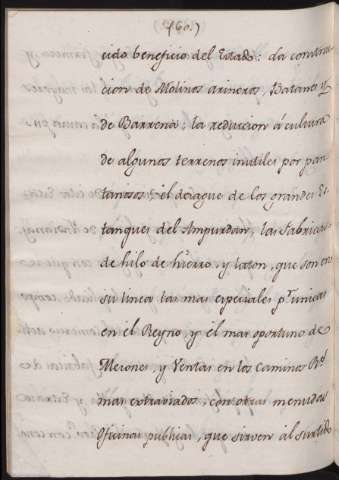 (60.)
cido beneficio del Estado: la constru-
cion de Molinos arineros, Batanes y
de Barrena; la reducion á cultura
de algunos terrenos inutiles por pan-
tanosos; el desague de los grandes Es-
tanques del Ampurdan; las fabricas
de hilo de hierro, y laton, que son en
su linea las mas especiales pr. unicas
en el Reyno, y el mas oportuno de
Mesones, y Ventas en los Caminos Rs.
mas extraviados, con otras menudas
oficinas publicas, que sirven al surtido